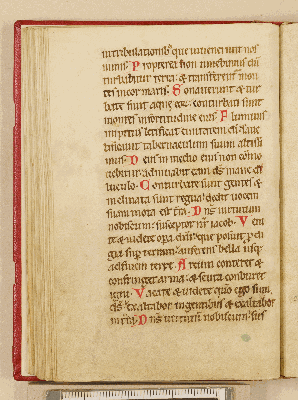 in tribulationibus que invenerunt nos
nimis. Propterea non timebimus dum
turbabitur terra: & transferent᷑ mon
tes in cor maris. Sonuerunt & tur
bate sunt aque eoꝝ: conturbati sunt
montes in fortitudine eius. Fluminis
impetus letificat civitatem di͞: sanc
tificavit tabernaculum suum altissi
mus. Deus in medio eius non com̄o
vebitur: adiuvabit eam ds͞ mane di
luculo. Conturbate sunt gentes &
inclinata sunt regna: dedit vocem
suam mota est t͞ra. Dn͞s virtutum
nobiscum: susceptor nr͞ iacob. Veni
te & videte opa dn͞i: que posuit p̱di
gia sup̱ terram: auferens bella usq;
ad finem terre. Arcum conteret &
confringet arma: & scuta comburet
igni. Vacate & videte quō ego sum
ds͞: exaltabor in gentibus & exaltabor
in t͞ra. Dn͞s virtutū nobiscum: sus